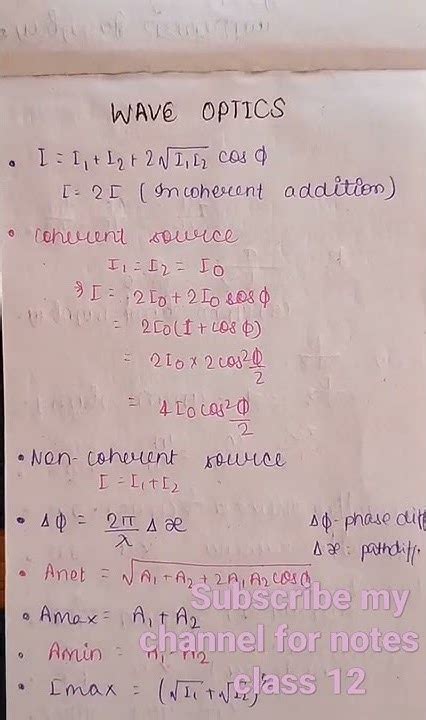 WAVE OPTICS
• I = I₁ + I₂ + 2√I₁I₂ cos ϕ
I = 2I (Incoherent addition)
• Coherent source
I₁ = I₂ = I₀
I = 2I₀ + 2I₀ cos ϕ
= 2I₀ (1 + cos ϕ)
= 2I₀ × 2 cos² ϕ/2
= 4I₀ cos² ϕ/2
• Non-coherent source
I = I₁ + I₂
• Δϕ = 2π/λ Δx
Δϕ - phase diff
Δx : path diff.
• Anet = √A₁ + A₂ + 2A₁A₂ cos ϕ
• Amax = A₁ + A₂
• Amin = A₁ - A₂
• Imax = (√I₁ + √I₂)²
Subscribe my
channel for notes
class 12